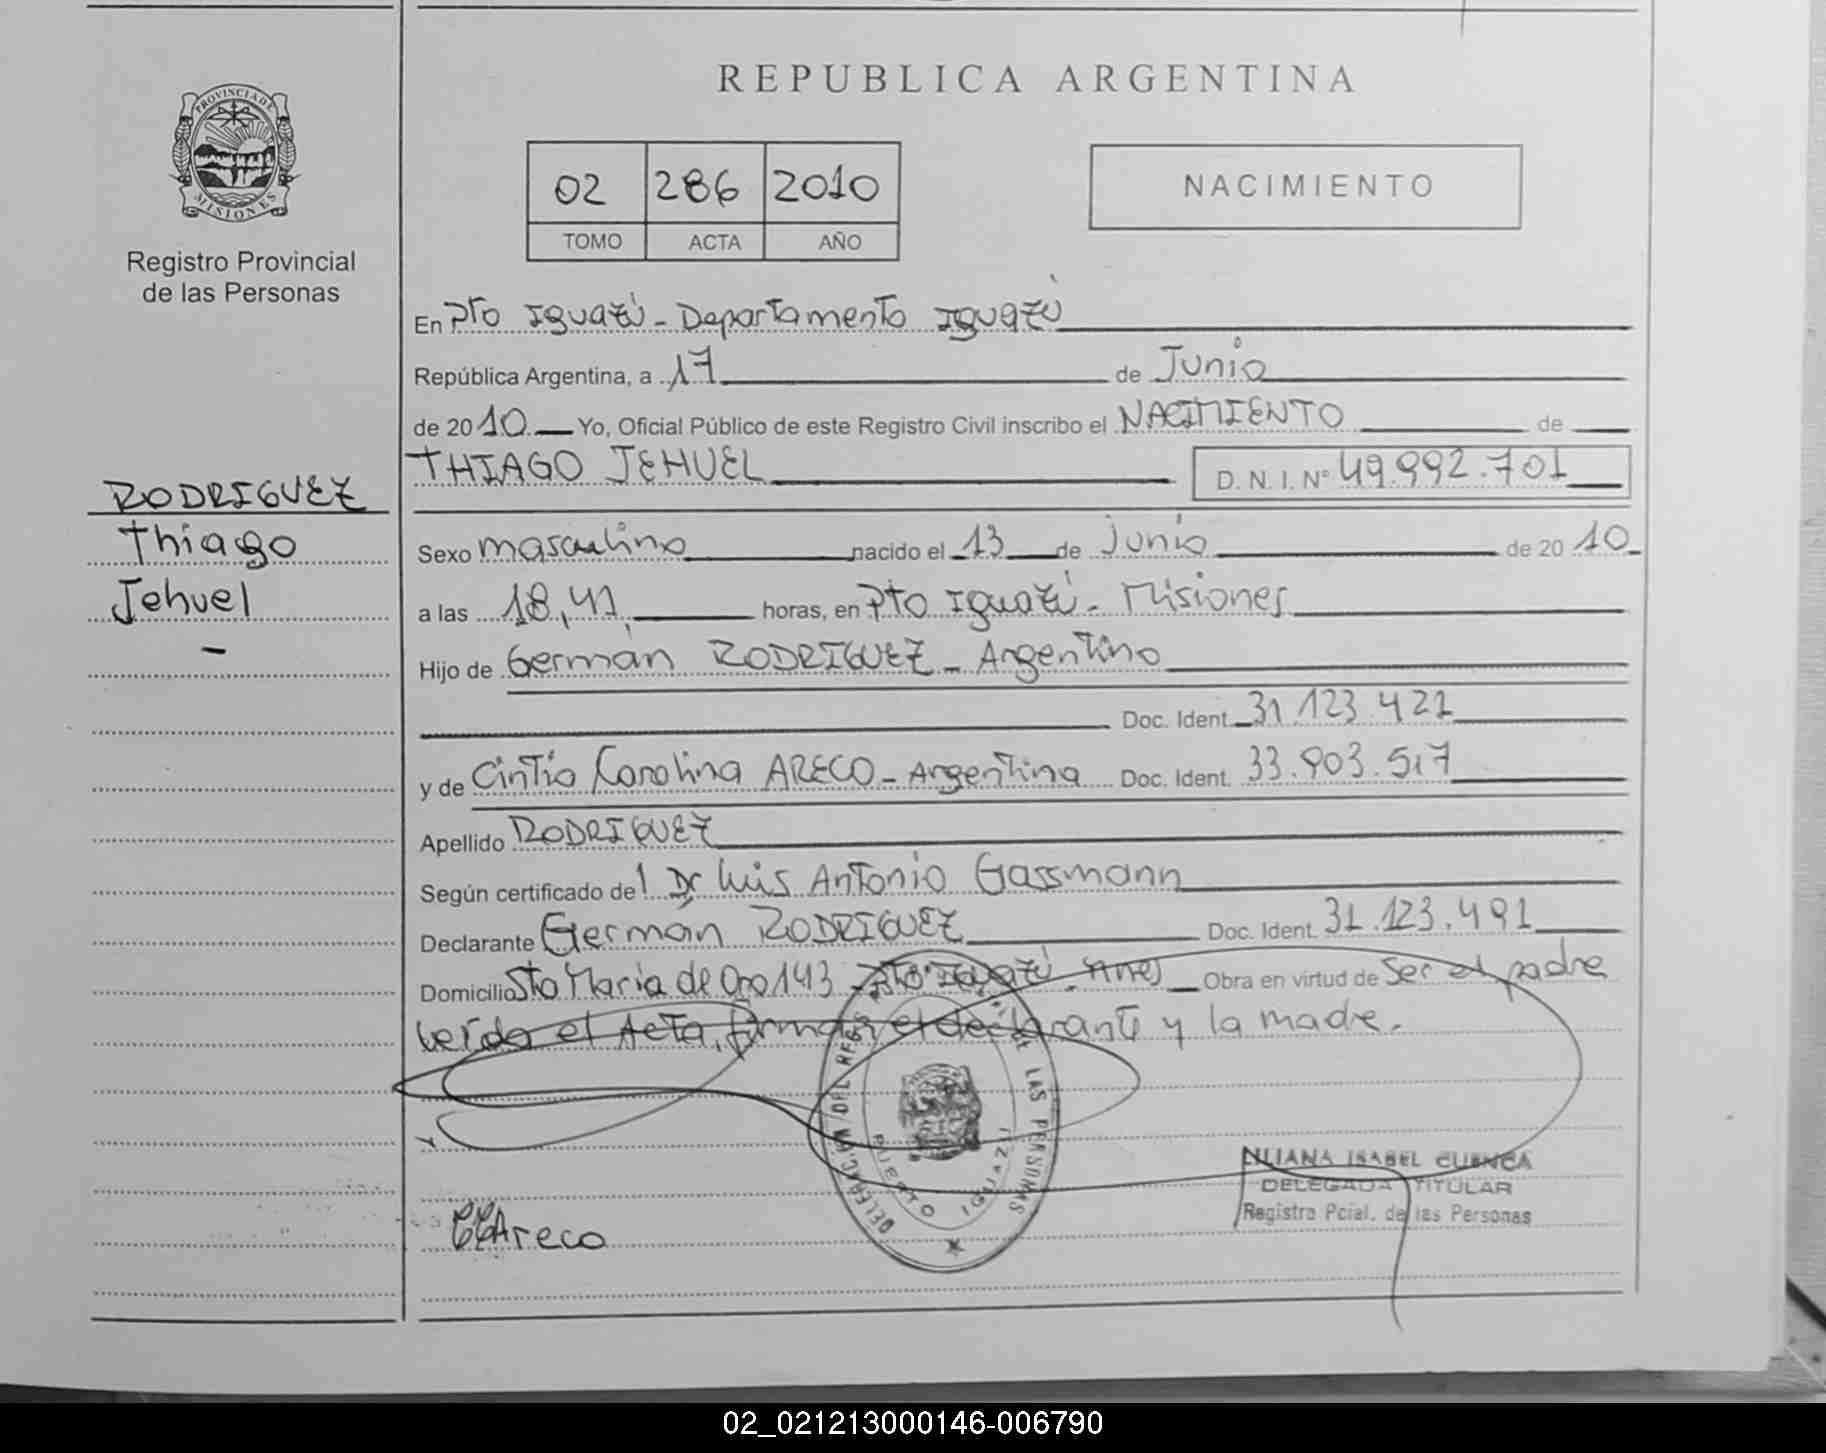 PROVINCIA DE
MISIONES
Registro Provincial
de las Personas
RODRIGUEZ
Thiago
Jehuel
-
REPUBLICA ARGENTINA
02 286 2010
TOMO ACTA AÑO
NACIMIENTO
En Pto Iguazú - Departamento Iguazú
República Argentina, a 17 de Junio
de 2010 Yo, Oficial Público de este Registro Civil inscribo el NACIMIENTO de
THIAGO JEHUEL D. N. I. Nº 49.992.701
Sexo masculino nacido el 13 de junio de 2010
a las 18,41 horas, en Pto Iguazú - Misiones
Hijo de Germán RODRIGUEZ - Argentino
Doc. Ident. 31.123.421
y de Cintia Carolina ARECO - Argentina Doc. Ident. 33.903.517
Apellido RODRIGUEZ
Según certificado del Dr Luis Antonio Gassmann
Declarante Germán RODRIGUEZ Doc. Ident. 31.123.491
Domicilio Sta María de Oro 143 Pto Iguazú Mnes Obra en virtud de ser el padre
Leída el Acta, firman el declarante y la madre.
DELEGACION DEL REG DE LAS PERSONAS
PUERTO IGUAZU
LILIANA ISABEL CUENCA
DELEGADA TITULAR
Registro Pcial. de las Personas
CCAreco
02_021213000146-006790